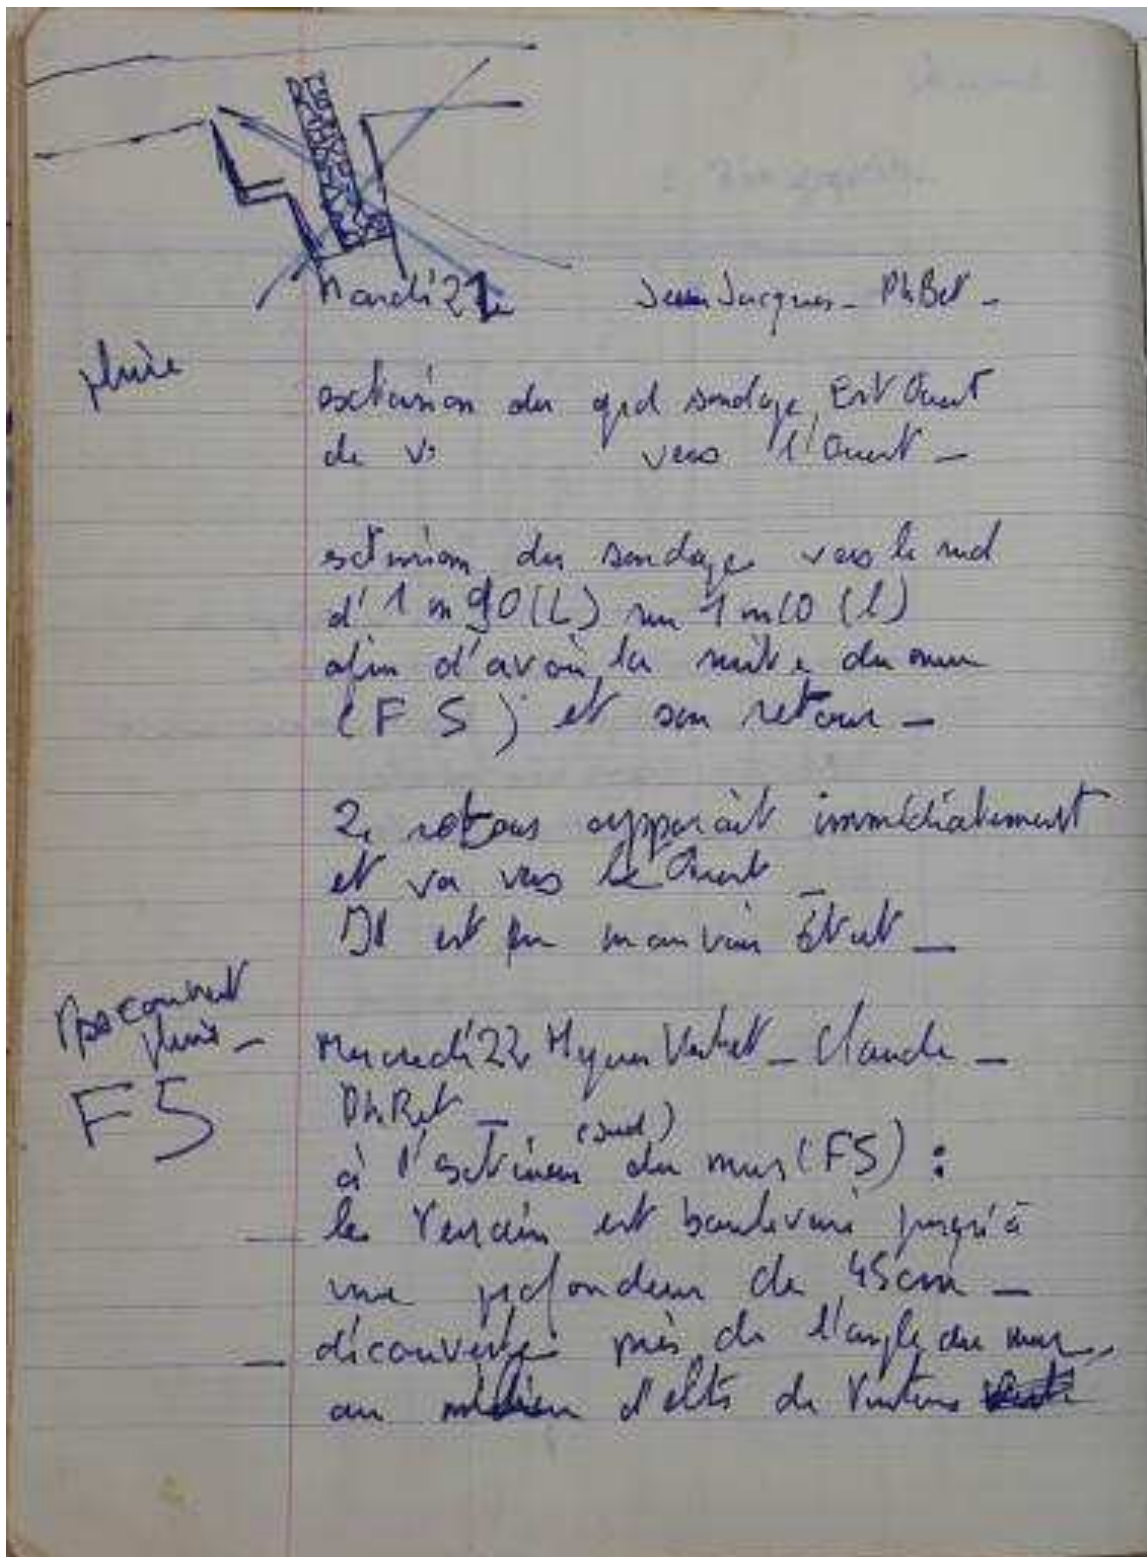 Mardi 21 Jean Jacques - Ph Bet -
pluie
extension du grd sondage Est Ouest
de vers l'Ouest -
extension du sondage vers le sud
d'1 m 90 (L) sur 1 m 10 (l)
afin d'avoir la suite du mur
(F S) et son retour -
retour apparait immédiatement
et va vers l'Ouest -
Il est en mauvais état -
couvert
pluie -
F5
Mercredi 22 - Claude -
Ph Bet -
(sud)
à l'extérieur du mur (F5) :
- le terrain est bouleversé jusqu'à
une profondeur de 45 cm -
- découverte près de l'angle du mur,
au milieu d'elts de